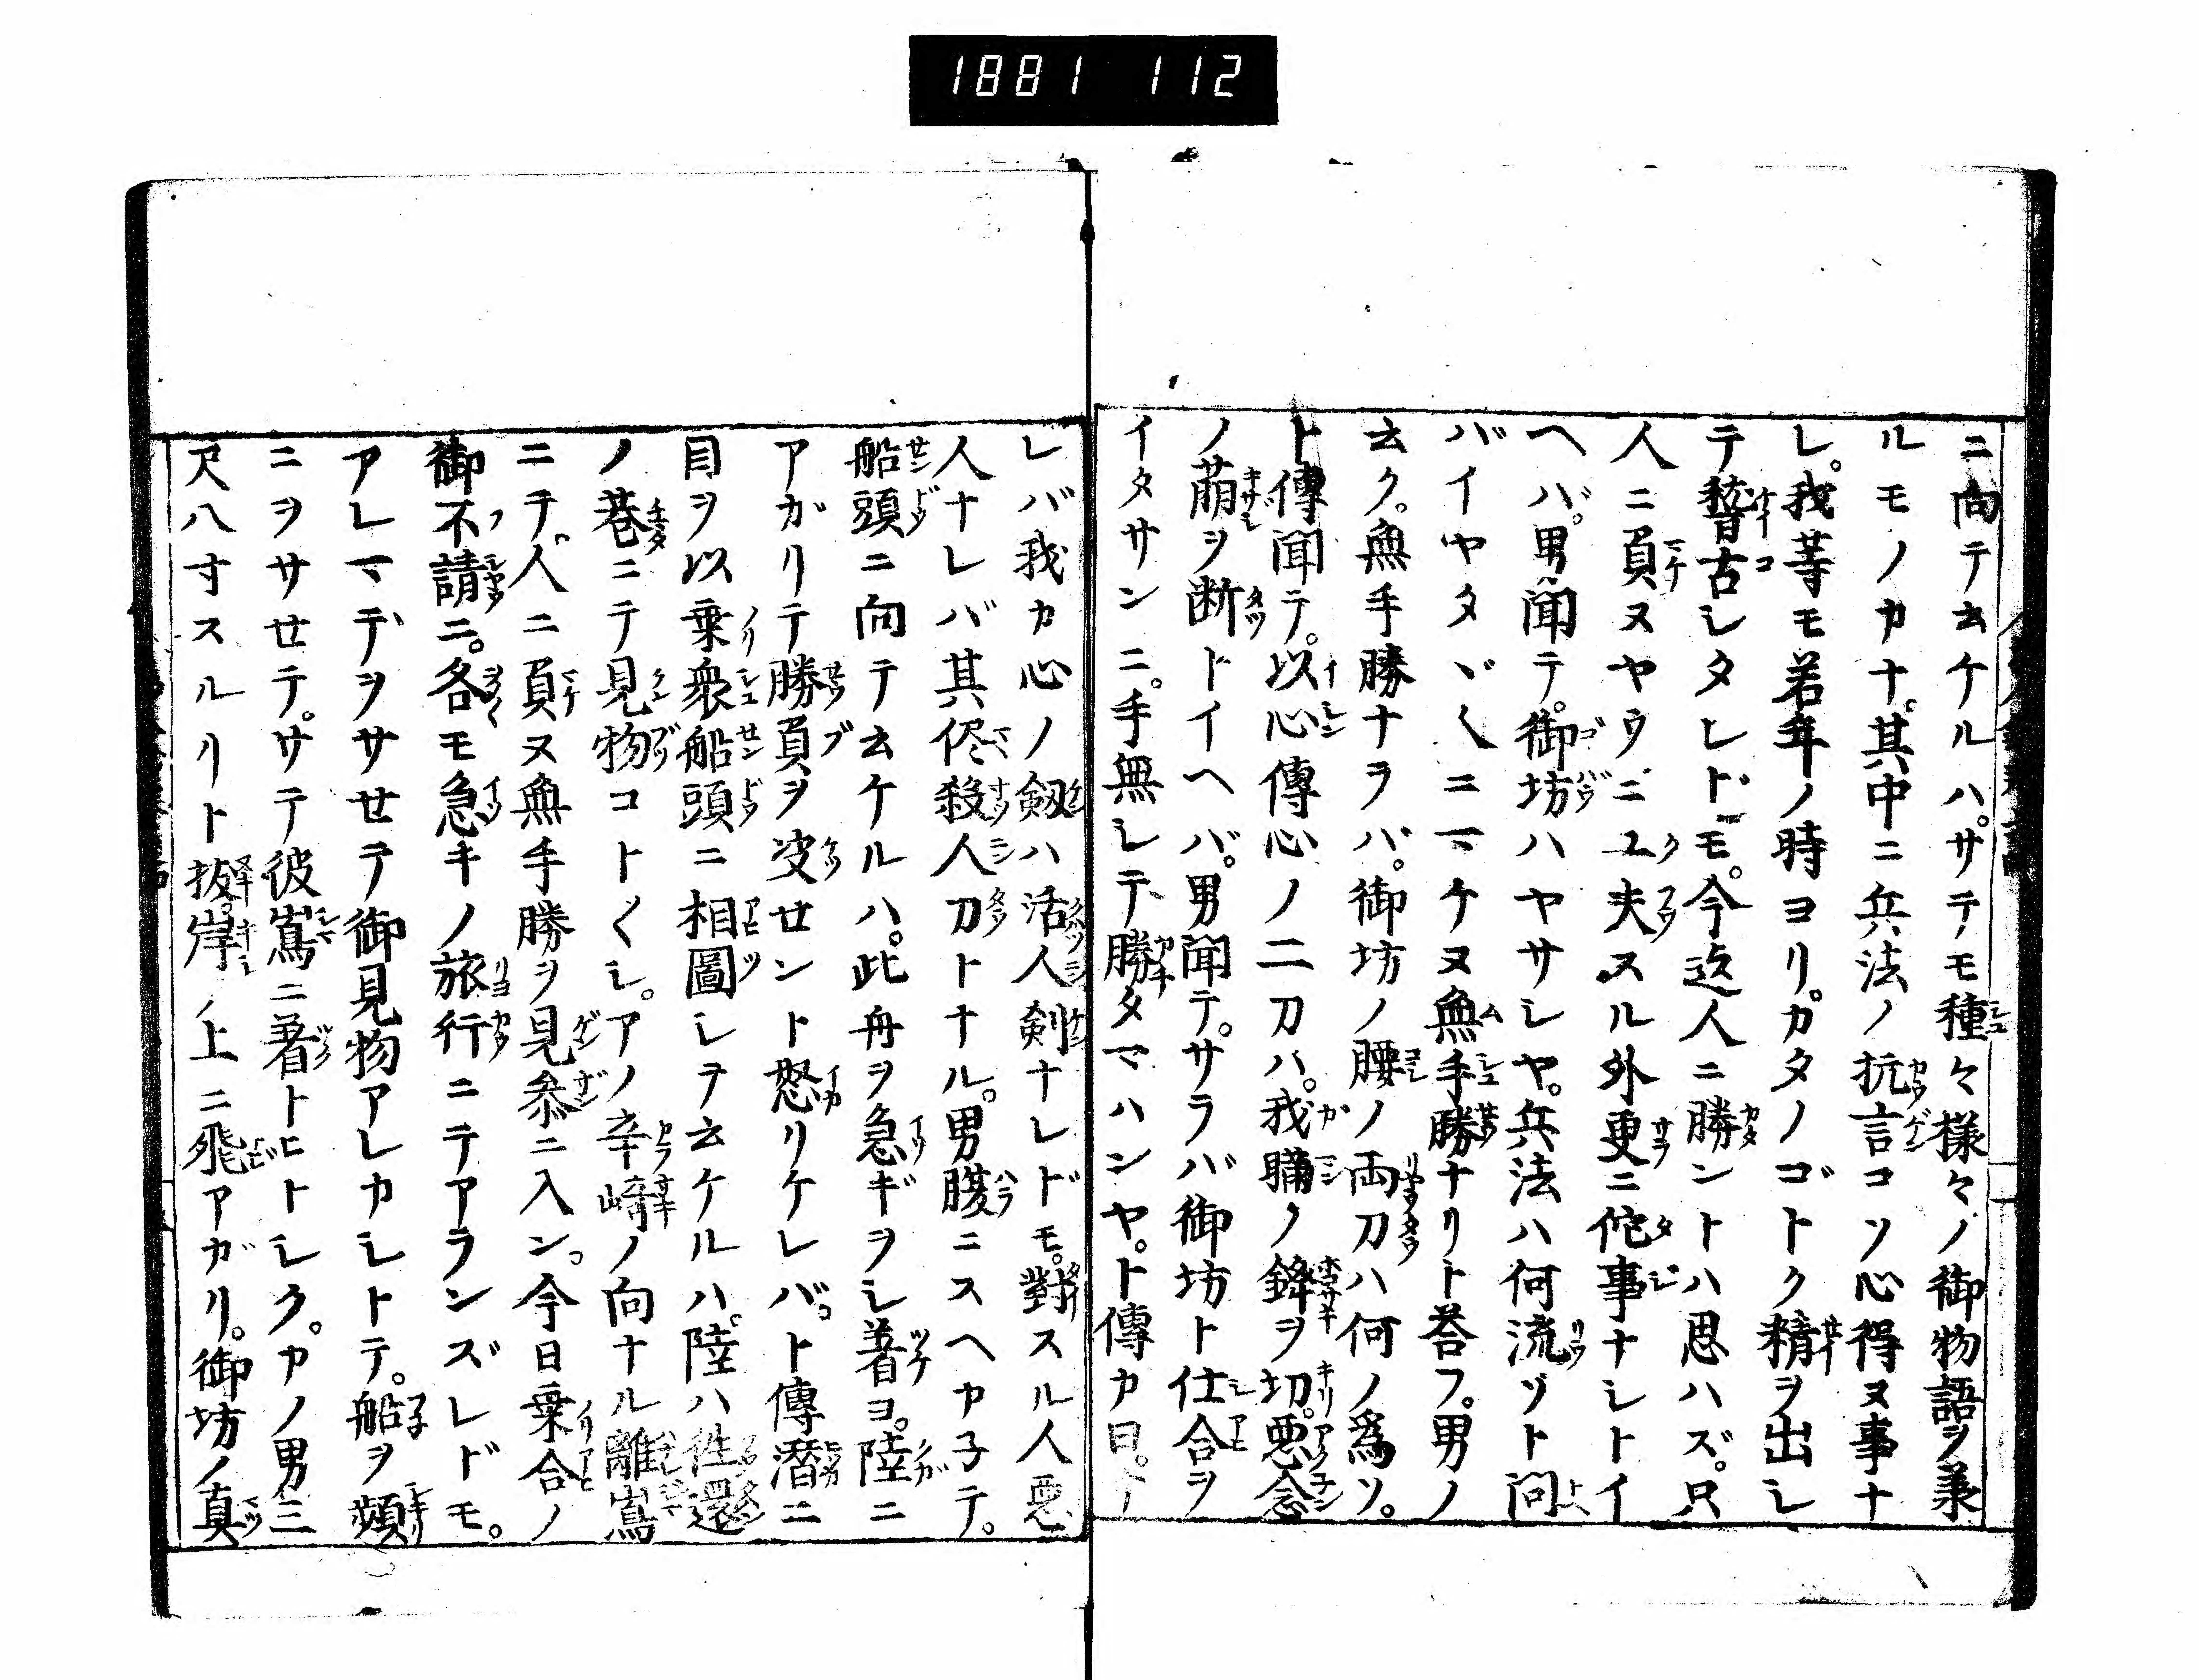 1881 112
ニ向テ云ケルハ。サテモ種々様々ノ御物語ヲ兼
ルモノカナ。其中ニ兵法ノ抗言コソ心得ヌ事ナ
レ。我等モ若年ノ時ヨリ。カタノゴトク精ヲ出シ
テ稽古シタレドモ。今迄人ニ勝ントハ思ハズ。只
人ニ負ヌヤウニ工夫スル外更ニ佗事ナシトイ
ヘバ。男聞テ。御坊ハヤサシヤ。兵法ハ何流ゾト問
バイヤタヾ〱ニマケヌ無手勝ナリト荅フ。男ノ
云ク。無手勝ナラバ。御坊ノ腰ノ両刀ハ何ノ為ソ。
ト傳聞テ。以心傳心ノ二刀ハ。我慢ノ鋒ヲ切。悪念
ノ萠ヲ断トイヘバ。男聞テ。サラバ御坊ト仕合ヲ
イタサンニ。手無シテ勝タマハンヤ。ト傳カ曰。サ
レバ我カ心ノ剱ハ活人剣ナレドモ。對スル人悪
人ナレバ其侭殺人刀トナル。男腹ニスヘカ子テ。
船頭ニ向テ云ケルハ。此舟ヲ急ギヲシ著ヨ。陸ニ
アガリテ勝負ヲ决せント怒リケレバ。ト傳潜ニ
目ヲ以乗衆船頭ニ相圖シテ云ケルハ。陸ハ徃還
ノ巷ニテ見物コト〱シ。アノ辛崎ノ向ナル離嶌
ニテ。人ニ負ヌ無手勝ヲ見参ニ入ン。今日乗合ノ
御不請ニ。各モ急キノ旅行ニテアランズレドモ。
アレマデヲサせテ御見物アレカシトテ。船ヲ頻
ニヲサせテ。サテ彼嶌ニ著トヒトシク。カノ男三
尺八寸スルリト抜。岸ノ上ニ飛アガリ。御坊ノ真